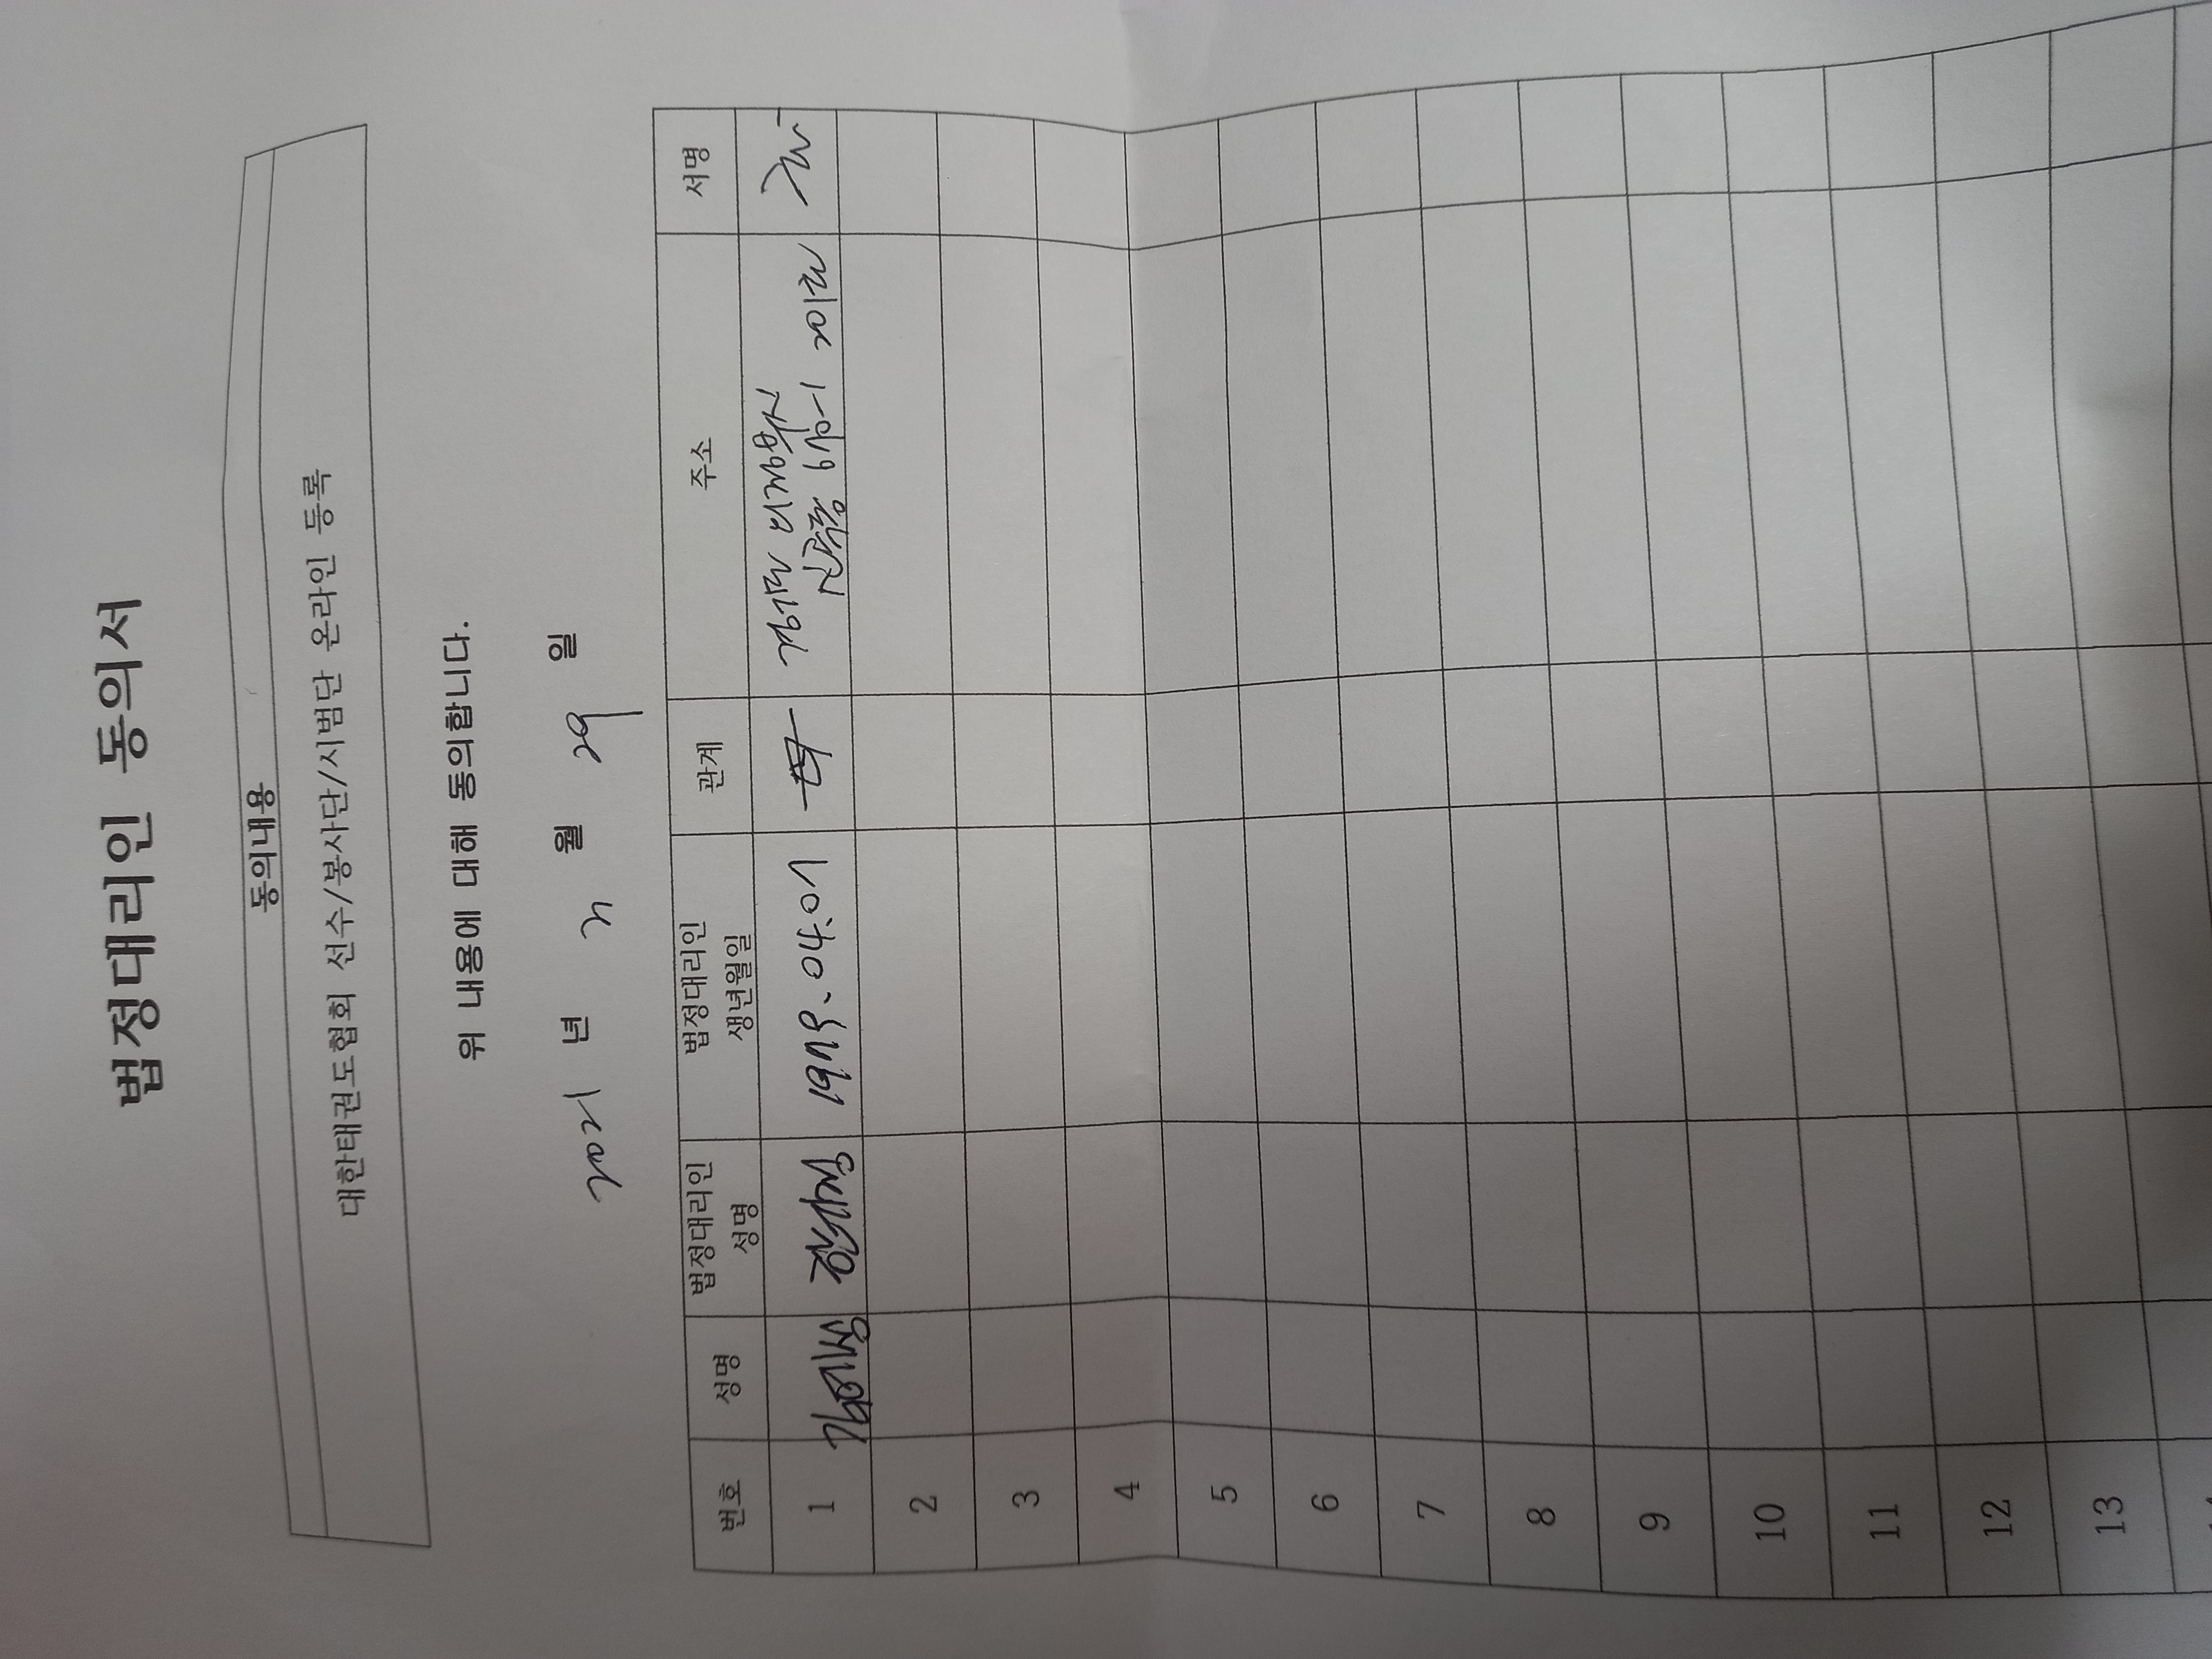 법정대리인 동의서
동의내용
대한태권도협회 선수/봉사단/시범단 온라인 등록
위 내용에 대해 동의합니다.
2021 년 월 29 일
번호 성명 법정대리인 성명 법정대리인 생년월일 관계 주소 서명
1 04.01 모 경기도 의정부시
2
3
4
5
6
7
8
9
10
11
12
13